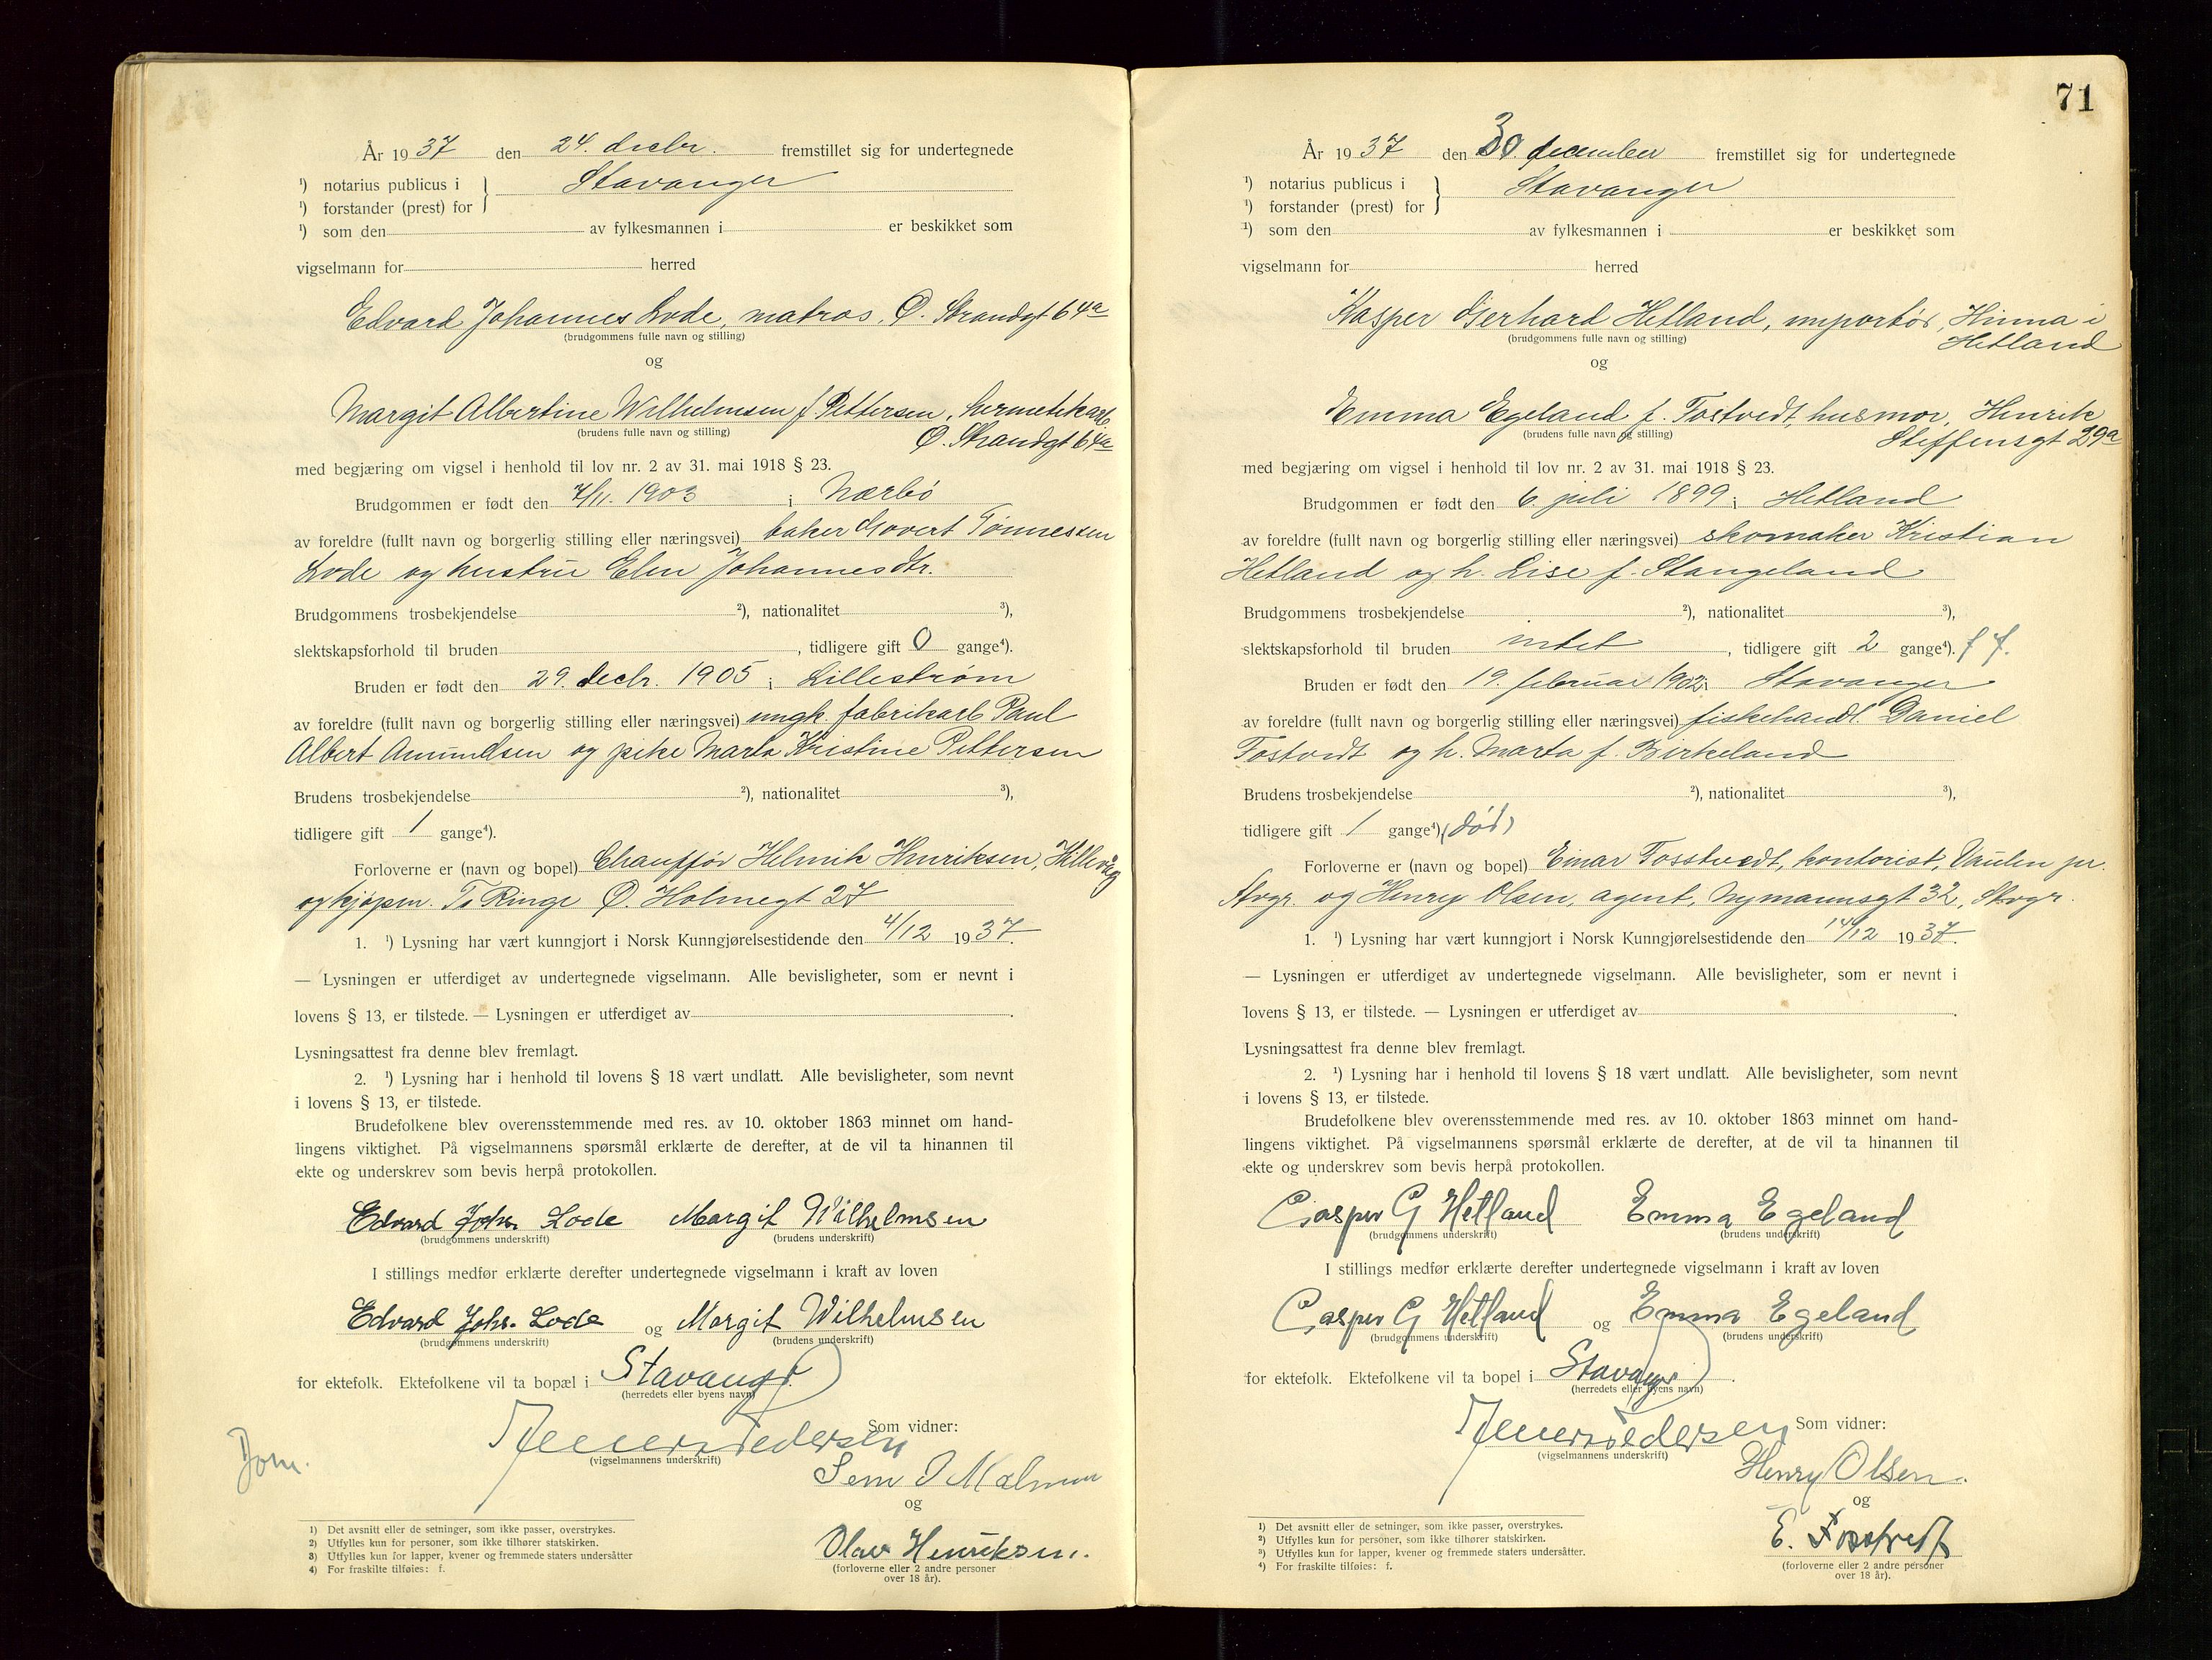 År 1937 den 24. decbr. fremstillet sig for undertegnede
¹) notarius publicus i } Stavanger
¹) forstander (prest) for
¹) som den av fylkesmannen i er beskikket som
vigselmann for herred
Edvard Johannes Lode, matros, Ø. Strandgt 64a
(brudgommens fulle navn og stilling)
og
Margit Albertine Wilhelmsen f. Pettersen, hermetikarb.
(brudens fulle navn og stilling)
Ø. Strandgt 64a
med begjæring om vigsel i henhold til lov nr. 2 av 31. mai 1918 § 23.
Brudgommen er født den 7/11. 1903 i Nærbø
av foreldre (fullt navn og borgerlig stilling eller næringsvei) baker Govert Tønnessen
Lode og hustru Elen Johannesdtr.
Brudgommens trosbekjendelse ²), nationalitet ³),
slektskapsforhold til bruden , tidligere gift 0 gange⁴).
Bruden er født den 29. decbr. 1905 i Lillestrøm
av foreldre (fullt navn og borgerlig stilling eller næringsvei) ungk. fabrikarb Paul
Albert Amundsen og pike Marta Kristine Pettersen
Brudens trosbekjendelse ²), nationalitet ³),
tidligere gift 1 gange⁴).
Forloverne er (navn og bopel) Chauffør Helmik Henriksen, Hillevåg
og kjøpm. Ts Ringe Ø. Holmegt 27
1. ¹) Lysning har vært kunngjort i Norsk Kunngjørelsestidende den 4/12 1937.
— Lysningen er utferdiget av undertegnede vigselmann. Alle bevisligheter, som er nevnt i
lovens § 13, er tilstede. — Lysningen er utferdiget av .
Lysningsattest fra denne blev fremlagt.
2. ¹) Lysning har i henhold til lovens § 18 vært undlatt. Alle bevisligheter, som nevnt
i lovens § 13, er tilstede.
Brudefolkene blev overensstemmende med res. av 10. oktober 1863 minnet om hand-
lingens viktighet. På vigselmannens spørsmål erklærte de derefter, at de vil ta hinannen til
ekte og underskrev som bevis herpå protokollen.
Edvard Johs. Lode Margit Wilhelmsen
(brudgommens underskrift) (brudens underskrift)
I stillings medfør erklærte derefter undertegnede vigselmann i kraft av loven
Edvard Johs. Lode og Margit Wilhelmsen
(brudgommens underskrift) (brudens underskrift)
for ektefolk. Ektefolkene vil ta bopæl i Stavanger.
(herredets eller byens navn)
Som vidner:
(vigselmannens underskrift)
og
Olav Henriksen.
(forloverne eller 2 andre personer
over 18 år).
1) Det avsnitt eller de setninger, som ikke passer, overstrykes.
2) Utfylles kun for personer, som ikke tilhører statskirken.
3) Utfylles kun for lapper, kvener og fremmede staters undersåtter
4) For fraskilte tilføies: f.
71
År 1937 den 30. december fremstillet sig for undertegnede
¹) notarius publicus i } Stavanger
¹) forstander (prest) for
¹) som den av fylkesmannen i er beskikket som
vigselmann for herred
Kasper Gerhard Hetland, importør, Hinna i
Hetland
(brudgommens fulle navn og stilling)
og
Emma Egeland f. Fostvedt, husmor, Henrik
Steffensgt 29a
(brudens fulle navn og stilling)
med begjæring om vigsel i henhold til lov nr. 2 av 31. mai 1918 § 23.
Brudgommen er født den 6. juli 1899 i Hetland
av foreldre (fullt navn og borgerlig stilling eller næringsvei) skomaker Kristian
Hetland og h. Lise f. Stangeland
Brudgommens trosbekjendelse ²), nationalitet ³),
slektskapsforhold til bruden intet , tidligere gift 2 gange⁴). f f.
Bruden er født den 19. februar 1902 i Stavanger
av foreldre (fullt navn og borgerlig stilling eller næringsvei) fiskehandl. Daniel
Fostvedt og h. Marta f. Birkeland
Brudens trosbekjendelse ²), nationalitet ³),
tidligere gift 1 gange⁴) (død)
Forloverne er (navn og bopel) Einar Fosstvedt, kontorist, Vaulen pr.
Stvgr. og Henry Olsen, agent, Nymannsgt 32, Stvgr.
1. ¹) Lysning har vært kunngjort i Norsk Kunngjørelsestidende den 14/12 1937.
— Lysningen er utferdiget av undertegnede vigselmann. Alle bevisligheter, som er nevnt i
lovens § 13, er tilstede. — Lysningen er utferdiget av .
Lysningsattest fra denne blev fremlagt.
2. ¹) Lysning har i henhold til lovens § 18 vært undlatt. Alle bevisligheter, som nevnt
i lovens § 13, er tilstede.
Brudefolkene blev overensstemmende med res. av 10. oktober 1863 minnet om hand-
lingens viktighet. På vigselmannens spørsmål erklærte de derefter, at de vil ta hinannen til
ekte og underskrev som bevis herpå protokollen.
Casper G Hetland Emma Egeland
(brudgommens underskrift) (brudens underskrift)
I stillings medfør erklærte derefter undertegnede vigselmann i kraft av loven
Casper G Hetland og Emma Egeland
(brudgommens underskrift) (brudens underskrift)
for ektefolk. Ektefolkene vil ta bopel i Stavanger .
(herredets eller byens navn)
Som vidner:
(vigselmannens underskrift)
Henry Olsen.
og
E. Fosstvedt
(forloverne eller 2 andre personer
over 18 år).
1) Det avsnitt eller de setninger, som ikke passer, overstrykes.
2) Utfylles kun for personer, som ikke tilhører statskirken.
3) Utfylles kun for lapper, kvener og fremmede staters undersåtter.
4) For fraskilte tilføies: f.